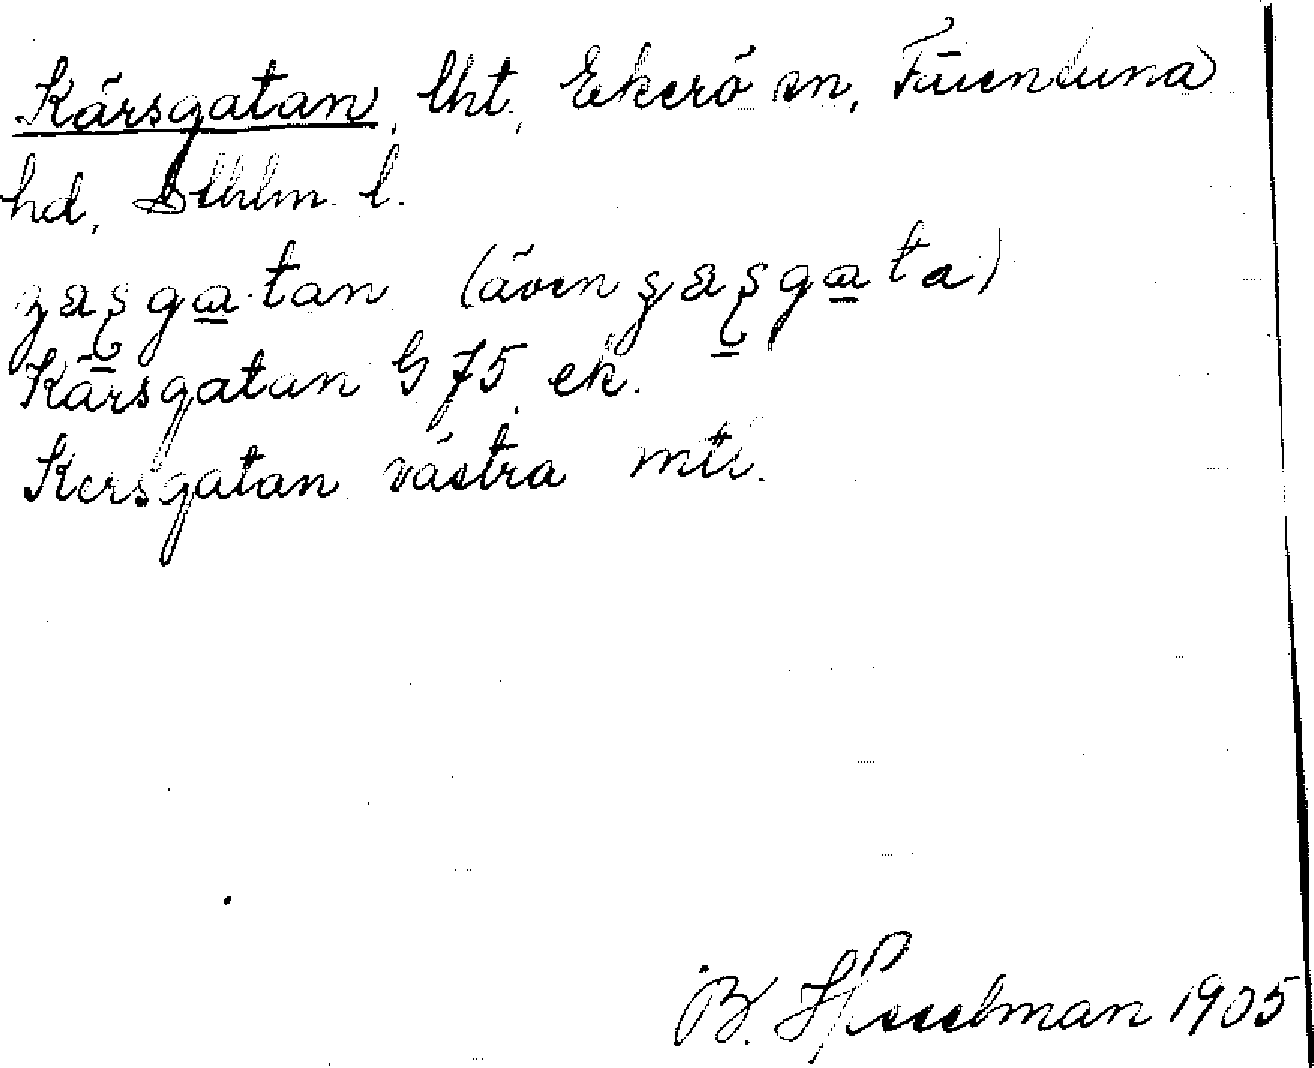 Kärsgatan, lht, Ekerö sn, Färentuna
hd, Sthlm l.
(även
Kärsgatan G 75 ek.
Kersgatan västra mtl.
B. Hesselman 1905